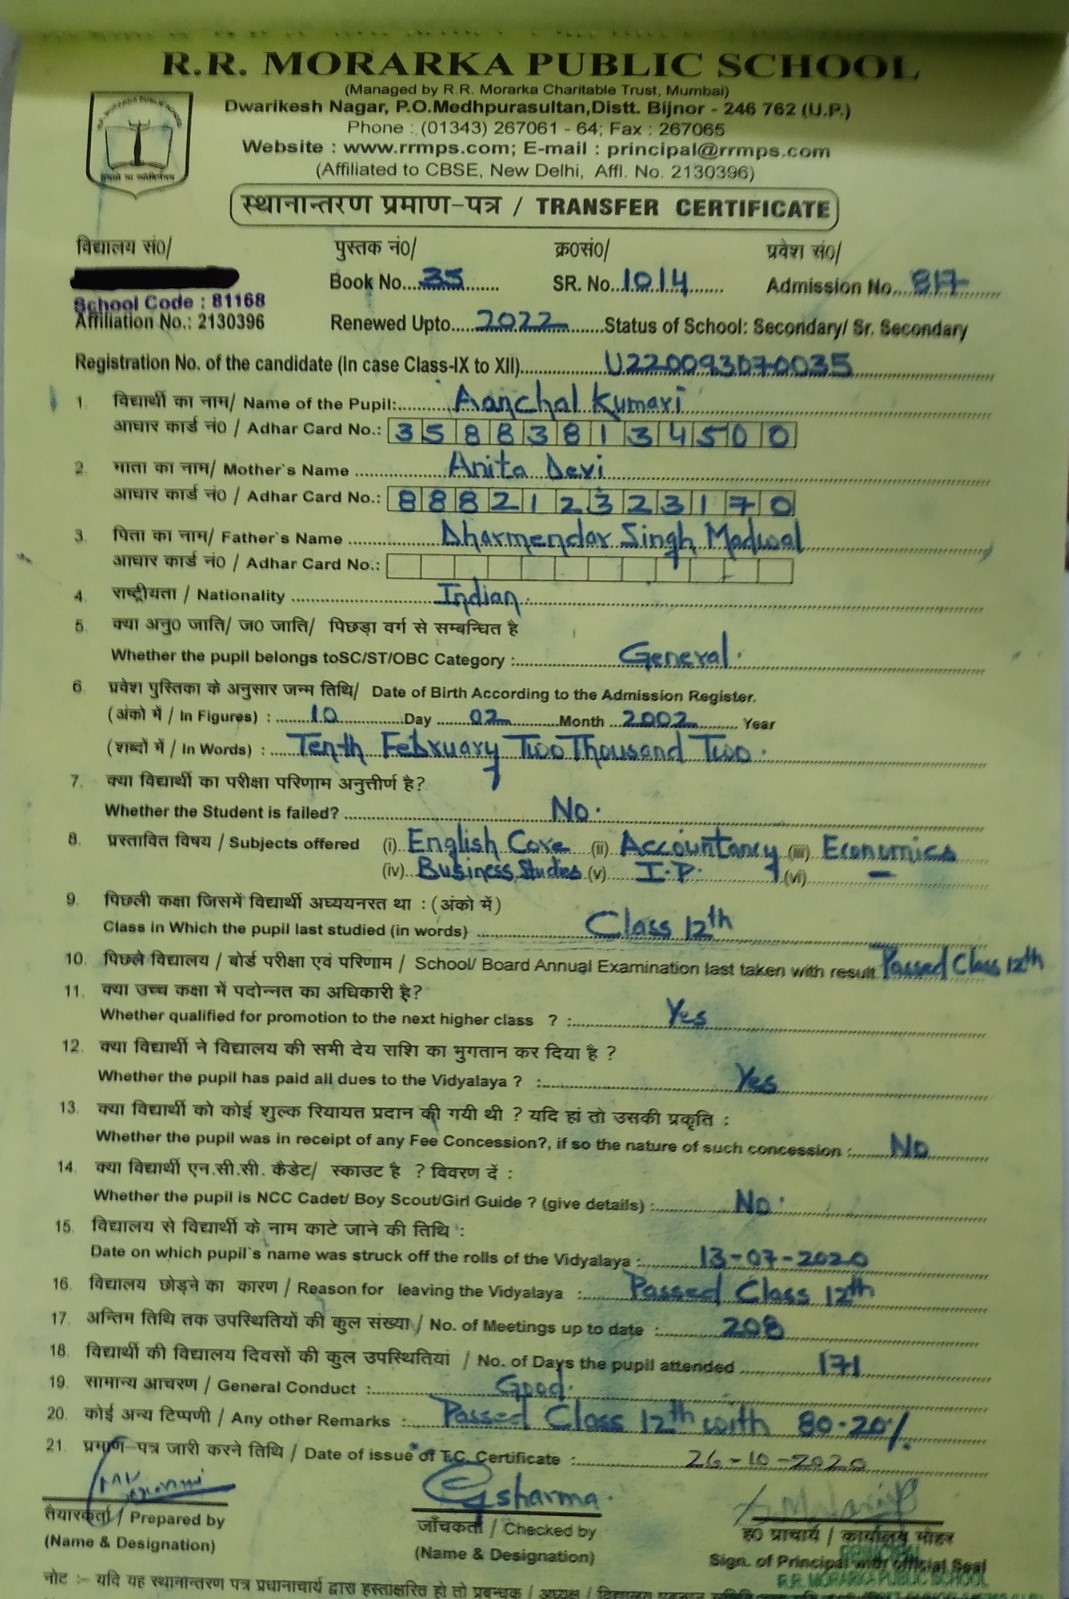 R.R. MORARKA PUBLIC SCHOOL
(Managed by R.R. Morarka Charitable Trust, Mumbai)
Dwarikesh Nagar, P.O.Medhpurasultan,Distt. Bijnor - 246 762 (U.P.)
Phone : (01343) 267061 - 64; Fax : 267065
Website : www.rrmps.com; E-mail : principal@rrmps.com
(Affiliated to CBSE, New Delhi, Affl. No. 2130396)
स्थानान्तरण प्रमाण-पत्र / TRANSFER CERTIFICATE
विद्यालय सं0/ पुस्तक नं0/ क्र0सं0/ प्रवेश सं0/
Book No. 35 SR. No. 1014 Admission No. 817
School Code : 81168
Affiliation No.: 2130396 Renewed Upto 2022 Status of School: Secondary/ Sr. Secondary
Registration No. of the candidate (In case Class-IX to XII) U220093070035
1. विद्यार्थी का नाम/ Name of the Pupil: Aanchal Kumari
आधार कार्ड नं0 / Adhar Card No.: 358838134500
2. माता का नाम/ Mother's Name Anita Devi
आधार कार्ड नं0 / Adhar Card No.: 888212323170
3. पिता का नाम/ Father's Name Dharmendar Singh Madwal
आधार कार्ड नं0 / Adhar Card No.:
4. राष्ट्रीयता / Nationality Indian
5. क्या अनु0 जाति/ ज0 जाति/ पिछड़ा वर्ग से सम्बन्धित है
Whether the pupil belongs toSC/ST/OBC Category : General.
6. प्रवेश पुस्तिका के अनुसार जन्म तिथि/ Date of Birth According to the Admission Register.
(अंको में / In Figures) : 10 Day 02 Month 2002 Year
(शब्दों में / In Words) : Tenth February Two Thousand Two.
7. क्या विद्यार्थी का परीक्षा परिणाम अनुत्तीर्ण है?
Whether the Student is failed? No.
8. प्रस्तावित विषय / Subjects offered (i) English Core (ii) Accountancy (iii) Economics
(iv) Business Studies (v) I.P. (vi) –
9. पिछली कक्षा जिसमें विद्यार्थी अघ्ययनरत था : (अंको में)
Class in Which the pupil last studied (in words) Class 12th
10. पिछले विद्यालय / बोर्ड परीक्षा एवं परिणाम / School/ Board Annual Examination last taken with result Passed Class 12th
11. क्या उच्च कक्षा में पदोन्नत का अधिकारी है?
Whether qualified for promotion to the next higher class ? : Yes
12. क्या विद्यार्थी ने विद्यालय की सभी देय राशि का भुगतान कर दिया है ?
Whether the pupil has paid all dues to the Vidyalaya ? : Yes
13. क्या विद्यार्थी को कोई शुल्क रियायत प्रदान की गयी थी ? यदि हां तो उसकी प्रकृति :
Whether the pupil was in receipt of any Fee Concession?, if so the nature of such concession : No
14. क्या विद्यार्थी एन.सी.सी. कैडेट/ स्काउट है ? विवरण दें :
Whether the pupil is NCC Cadet/ Boy Scout/Girl Guide ? (give details) : No.
15. विद्यालय से विद्यार्थी के नाम काटे जाने की तिथि :
Date on which pupil's name was struck off the rolls of the Vidyalaya : 13-07-2020
16. विद्यालय छोड़ने का कारण / Reason for leaving the Vidyalaya : Passed Class 12th
17. अन्तिम तिथि तक उपस्थितियों की कुल संख्या / No. of Meetings up to date : 208
18. विद्यार्थी की विद्यालय दिवसों की कुल उपस्थितियां / No. of Days the pupil attended 171
19. सामान्य आचरण / General Conduct : Good.
20. कोई अन्य टिप्पणी / Any other Remarks : Passed Class 12th with 80.20%.
21. प्रमाण-पत्र जारी करने तिथि / Date of issue of T.C. Certificate : 26-10-2020
Gsharma.
तैयारकर्ता / Prepared by जाँचकर्ता / Checked by ह0 प्राचार्य / कार्यालय मोहर
(Name & Designation) (Name & Designation) Sign. of Principal with official Seal
PRINCIPAL
R.R. MORARKA PUBLIC SCHOOL
नोट :- यदि यह स्थानान्तरण पत्र प्रधानाचार्य द्वारा हस्ताक्षरित हो तो प्रबन्धक / अध्यक्ष / विद्यालय